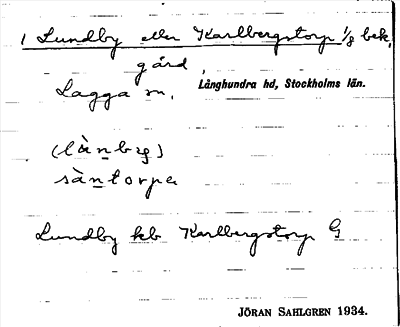 1 Lundby eller Karlbergstorp 1/8 bek.
gård,
Lagga sn,
Långhundra hd, Stockholms län.
(lànby)
sàntorpa
Lundby kb Karlbergstorp G
JÖRAN SAHLGREN 1934.